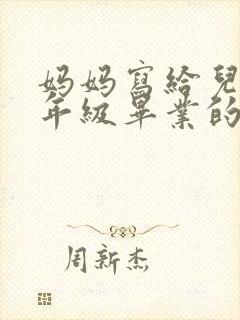 妈妈寫給兒
年級畢業的
周新杰